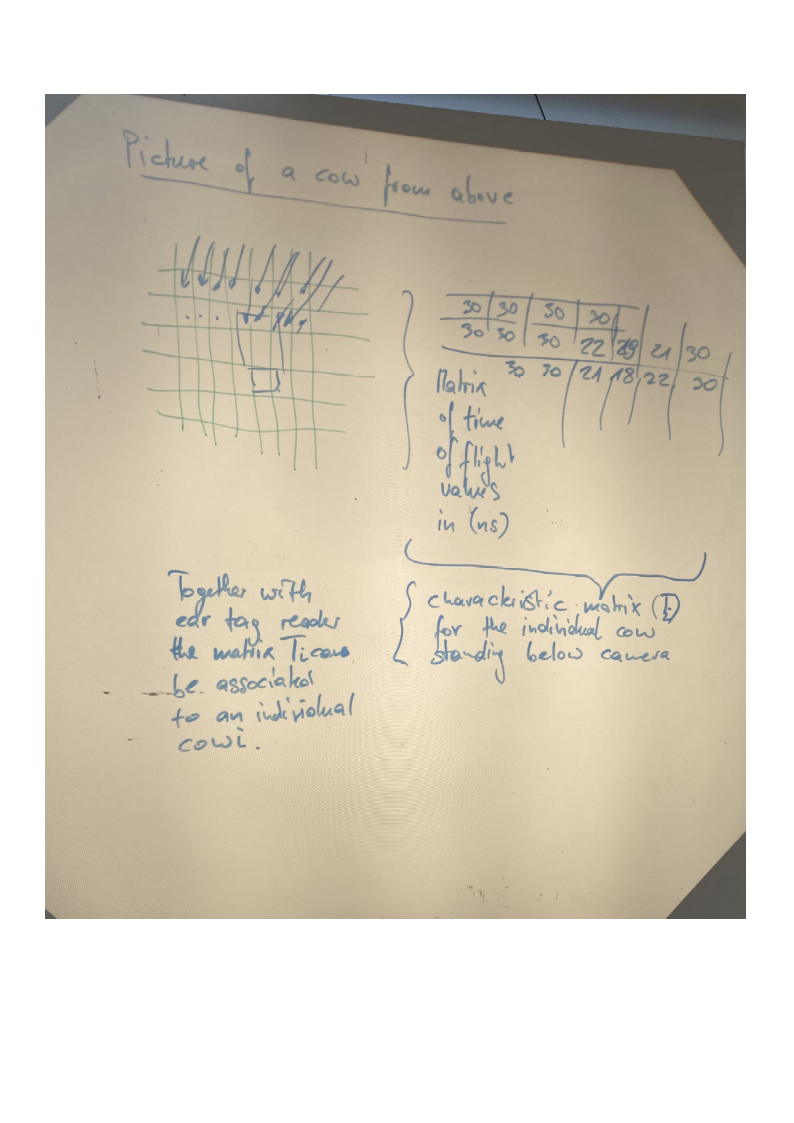 Picture of a cow from above
30 30 30 30
30 30 30 22 21 30
30 30 21 18 22 30
Matrix
of time
of flight
values
in (ns)
characteristic matrix
for the individual cow
standing below camera
Together with
ear tag reader
the matrix Ti can
be associated
to an individual
cow i.